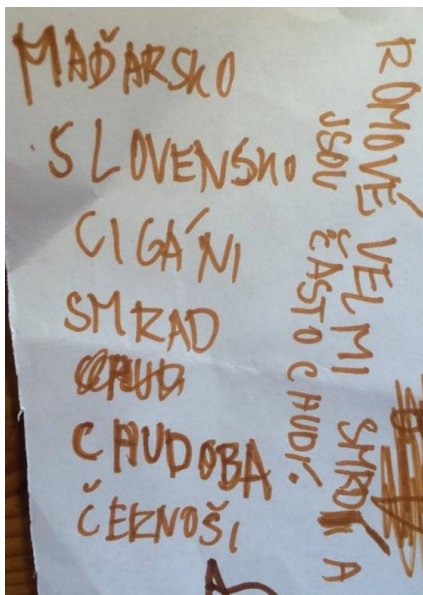 MAĎARSKO
SLOVENSKO
CIGÁNI
SMRAD
CHUDOBA
ČERNOŠI
ROMOVÉ VELMI SMRDÍ A
JSOU ČASTO CHUDÍ.